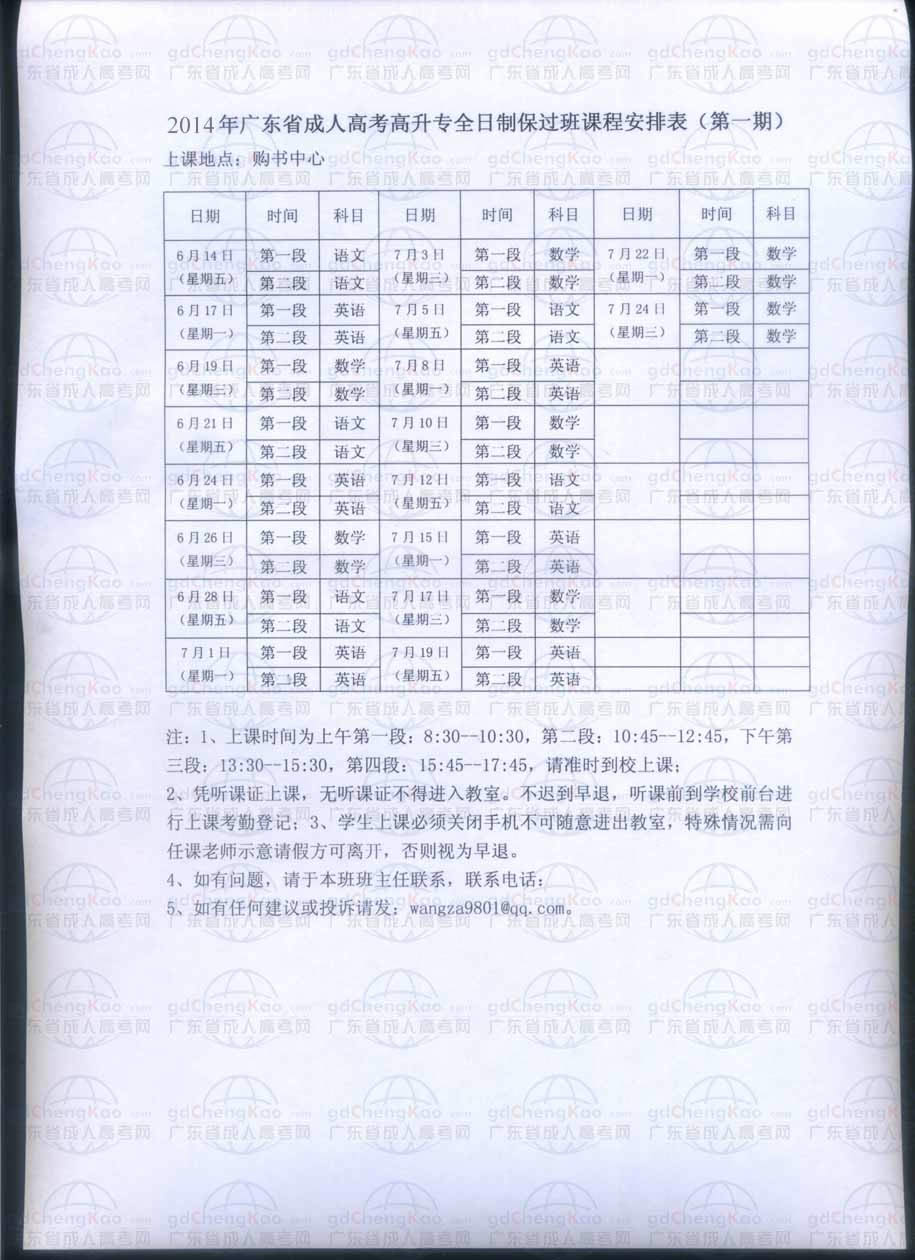 2014年广东省成人高考高升专全日制保过班课程安排表（第一期）
上课地点：购书中心
日期 时间 科目 日期 时间 科目 日期 时间 科目
6月14日 第一段 语文 7月3日 第一段 数学 7月22日 第一段 数学
（星期五） 第二段 语文 （星期三） 第二段 数学 （星期一） 第二段 数学
6月17日 第一段 英语 7月5日 第一段 语文 7月24日 第一段 数学
（星期一） 第二段 英语 （星期五） 第二段 语文 （星期三） 第二段 数学
6月19日 第一段 数学 7月8日 第一段 英语
（星期三） 第二段 数学 （星期一） 第二段 英语
6月21日 第一段 语文 7月10日 第一段 数学
（星期五） 第二段 语文 （星期三） 第二段 数学
6月24日 第一段 英语 7月12日 第一段 语文
（星期一） 第二段 英语 （星期五） 第二段 语文
6月26日 第一段 数学 7月15日 第一段 英语
（星期三） 第二段 数学 （星期一） 第二段 英语
6月28日 第一段 语文 7月17日 第一段 数学
（星期五） 第二段 语文 （星期三） 第二段 数学
7月1日 第一段 英语 7月19日 第一段 英语
（星期一） 第二段 英语 （星期五） 第二段 英语
注：1、上课时间为上午第一段：8:30--10:30，第二段：10:45--12:45，下午第
三段：13:30--15:30，第四段：15:45--17:45，请准时到校上课；
2、凭听课证上课，无听课证不得进入教室。不迟到早退，听课前到学校前台进
行上课考勤登记；3、学生上课必须关闭手机不可随意进出教室，特殊情况需向
任课老师示意请假方可离开，否则视为早退。
4、如有问题，请于本班班主任联系，联系电话：
5、如有任何建议或投诉请发：wangza9801@qq.com。
gdChengKao.com
广东省成人高考网